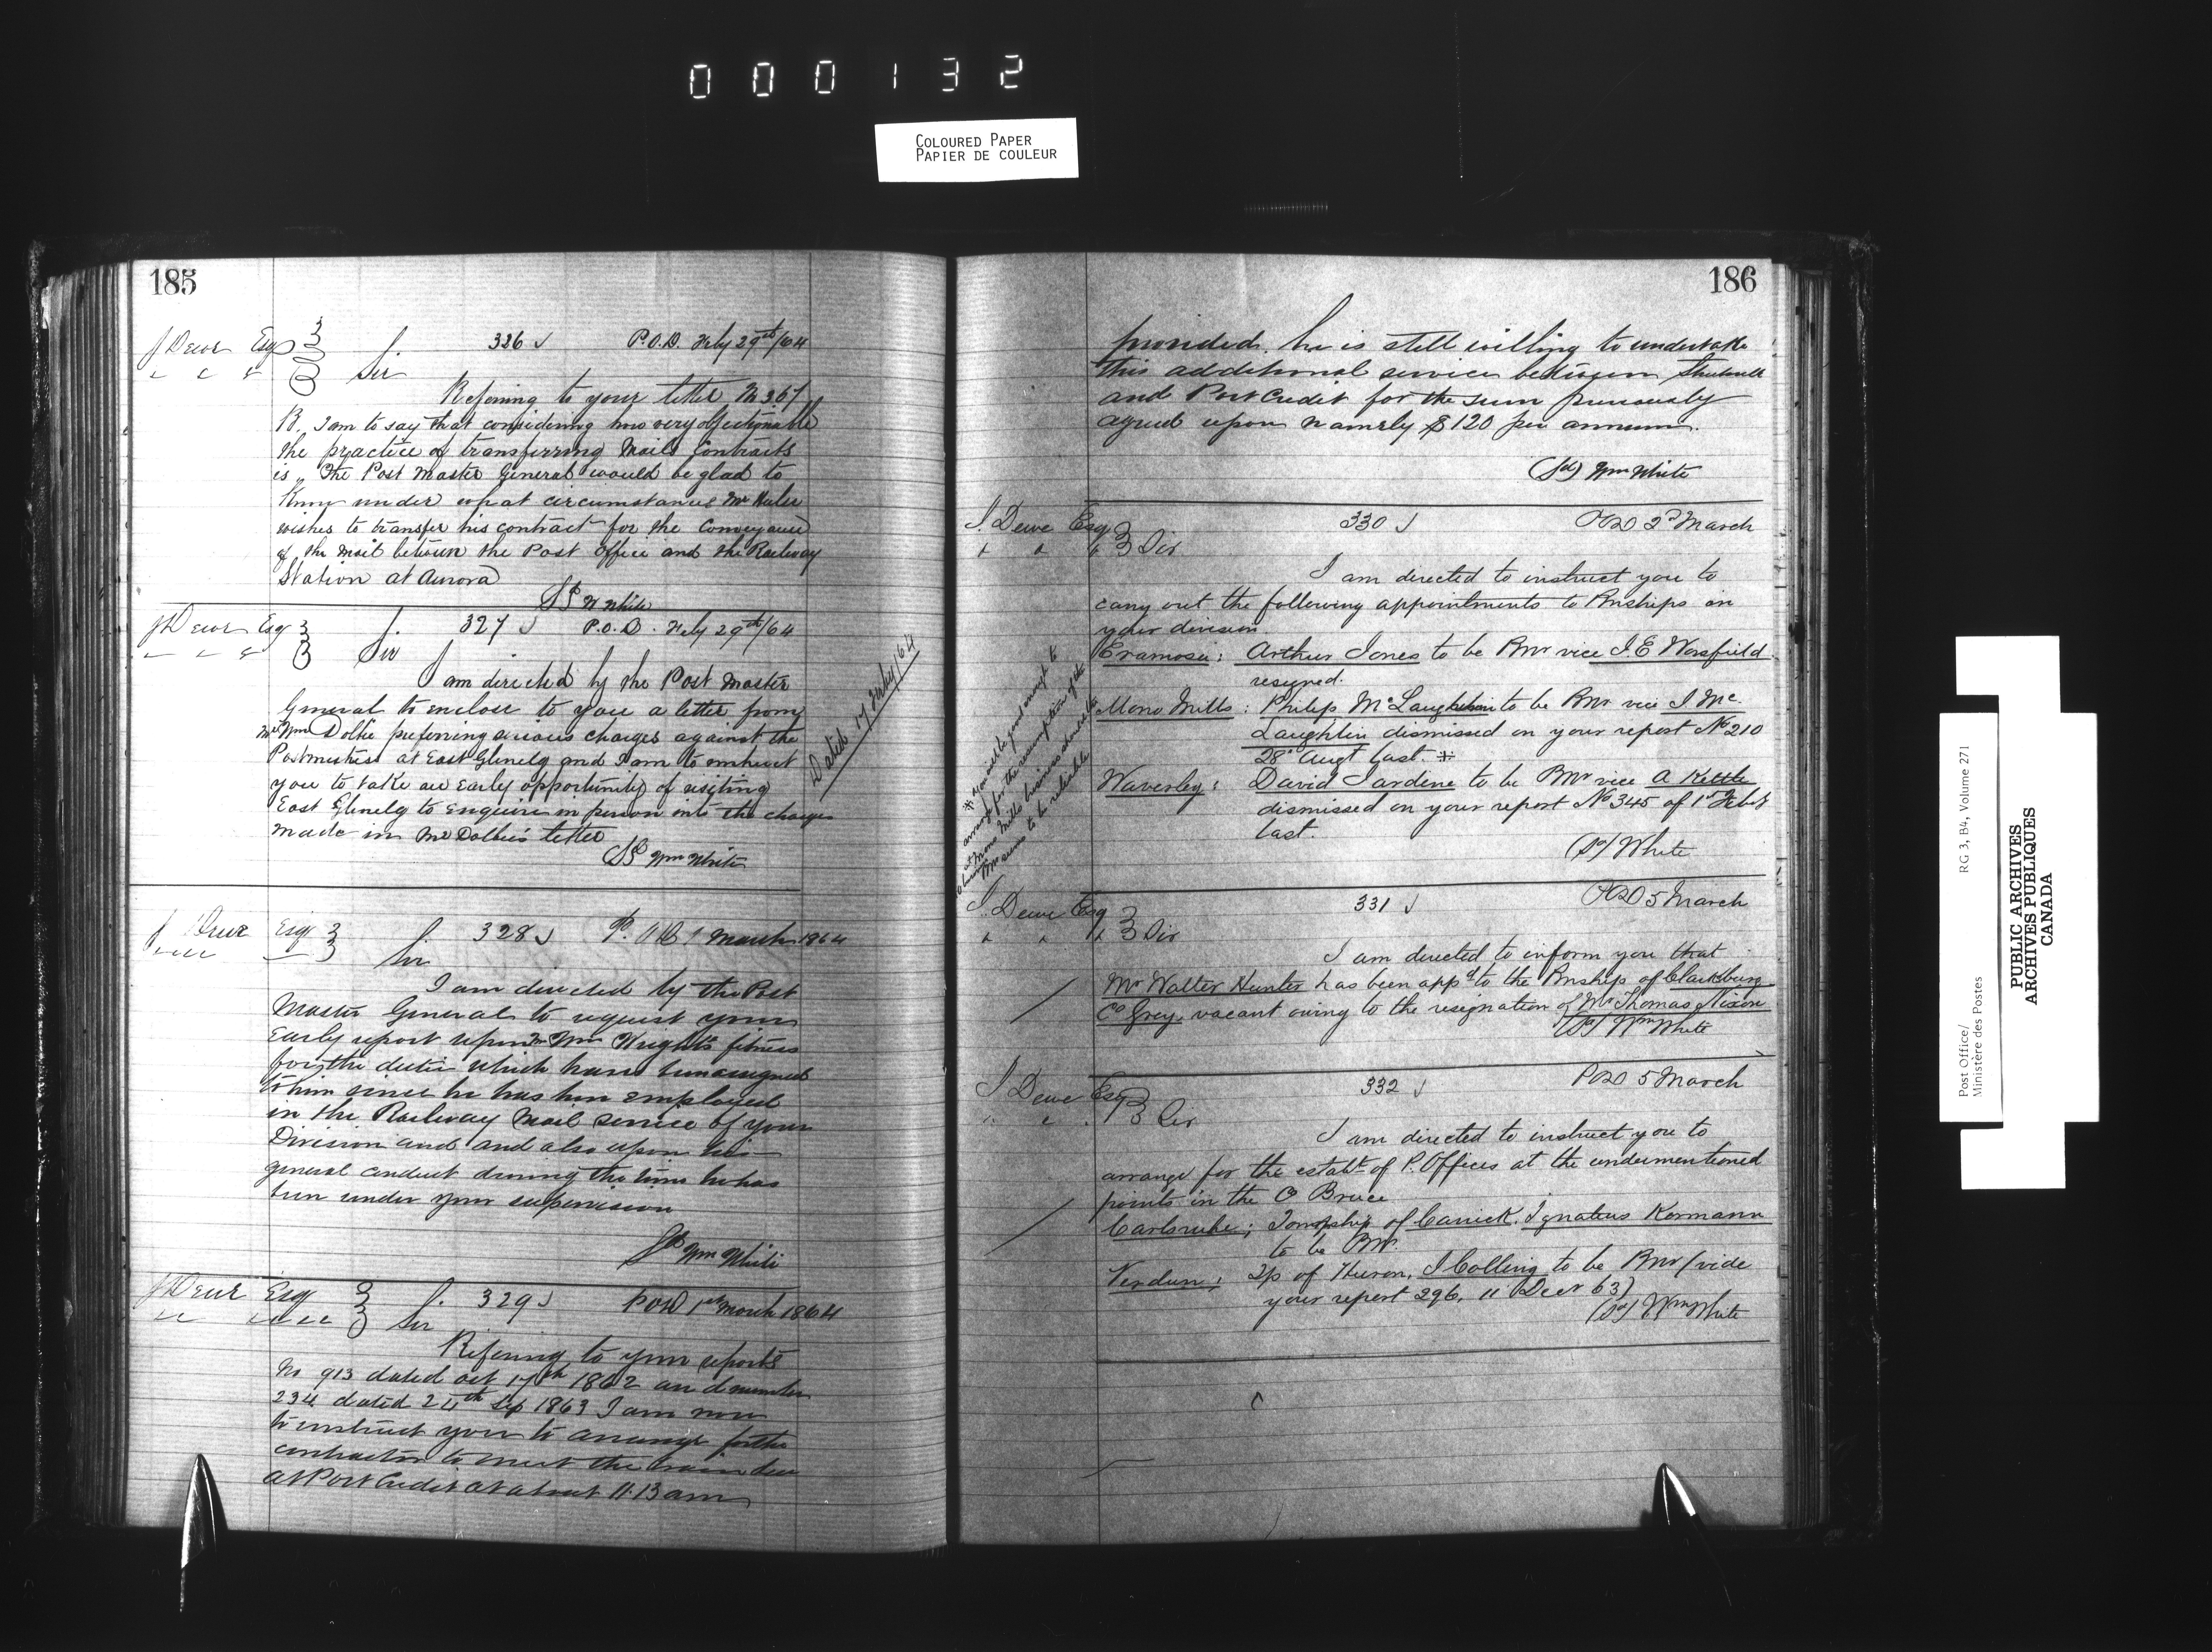 000132
COLOURED PAPER
PAPIER DE COULEUR
185
J Dewe Esq 326 J P.O.D. Feby 29th/64
Sir
Refering to your letter No 367
B. I am to say that considering how very objectionable
the practice of transferring Mail Contracts
is, the Post Master General would be glad to
Know under what circumstances Mr
wishes to transfer his contract for the Conveyance
of the Mail between the Post Office and the Railway
Station at Aurora
Sd W White
J Dewe Esq 327 J P.O.D. Feby 29th/64
Sir
I am directed by the Post Master
General to enclose to you a letter from
Mr Wm Dobie preferring serious charges against the
Postmistress at East Glenelg and I am to instruct
you to take an early opportunity of visiting
East Glenelg to enquire in person into the charges
made in Mr Dobbie's letter
Dated 17 Feby/64
Sd Wm White
J Dewe Esq 328 J P.O.D. 1 March 1864
Sir
I am directed by the Post
Master General to request your
Early report upon Mr Wm Wright's fitness
for the duties which have been assigned
to him since he has been employed
in the Railway Mail Service of your
Division and and also upon his
general conduct during the time he has
been under your supervision
Sd Wm White
J Dewe Esq 329 J POD 1st March 1864
Sir
Refering to your reports
No 913 dated Oct 17th 1862 and number
234 dated 24th Sep 1863 I am now
to instruct you to arrange for the
contractor to meet the train due
at Port Credit at about 11.13 am
186
provided he is still willing to undertake
this additional service between
and Port Credit for the sum previously
agreed upon namely $120 per annum.
(Sd) Wm White
J. Dewe Esq 330 J POD 2d March
Sir
I am directed to instruct you to
carry out the following appointments to Pmships in
your division
Eramosa: Arthur Jones to be Pmr vice J. E Worsfield
resigned.
Mono Mills: Philip McLaughlin to be Pmr vice J. Mc
Laughlin dismissed on your report No 210
28 Augt last. *
Waverley: David Jardine to be Pmr vice A Kettle
dismissed on your report No 345 of 1st Feby
last.
(Sd) White
* You will be good enough to
arrange for the resumption of the
at Mono Mills business should the
Pmr seem to be reliable
J. Dewe Esq 331 J POD 5 March
Sir
I am directed to inform you that
Mr Walter Hunter has been appd to the Pmship of Clarksburg
Co Grey, vacant owing to the resignation of Mr Thomas Nixon
(Sd) Wm White
J Dewe Esq 332 J POD 5 March
Sir
I am directed to instruct you to
arrange for the establt of P. Offices at the undermentioned
points in the Co Bruce
Carlsruhe; Township of Carrick. Ignatius Kormann
to be Pmr.
Verdun; Tp of Huron, J Colling to be Pmr (vide
your report 296, 11 Decr 63)
(Sd) Wm White
Post Office/
Ministère des Postes
RG 3, B4, Volume 271
PUBLIC ARCHIVES
ARCHIVES PUBLIQUES
CANADA